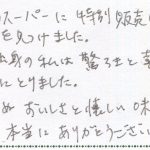 スーパーに特別販売
を見つけました。
身の私は驚きと
にとりました。
め おいしさと懐しい味
本当にありがとうござい